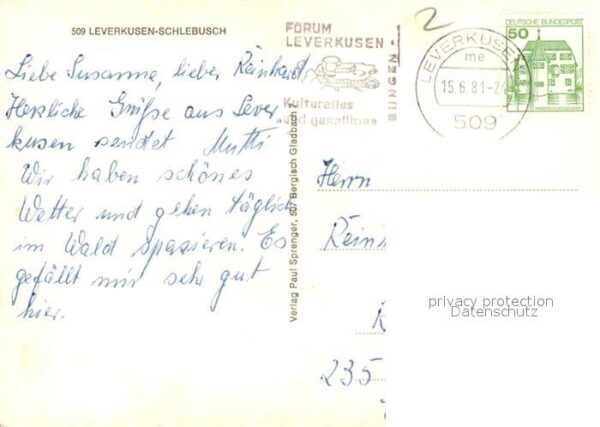 509 LEVERKUSEN-SCHLEBUSCH
Liebe Susanne, lieber Reinhard
Herzliche Grüße aus Lever-
kusen sendet Mutti
Wir haben schönes
Wetter und gehen täglich
im Wald spazieren. Es
gefällt mir sehr gut
hier.
Verlag Paul Sprenger, 507 Bergisch Gladbach
FORUM
LEVERKUSEN
Kulturelles
und geselliges
2
LEVERKUSEN
me
15.6.81-2
509
50
DEUTSCHE BUNDESPOST
Herrn
Rein
235
privacy protection
Datenschutz